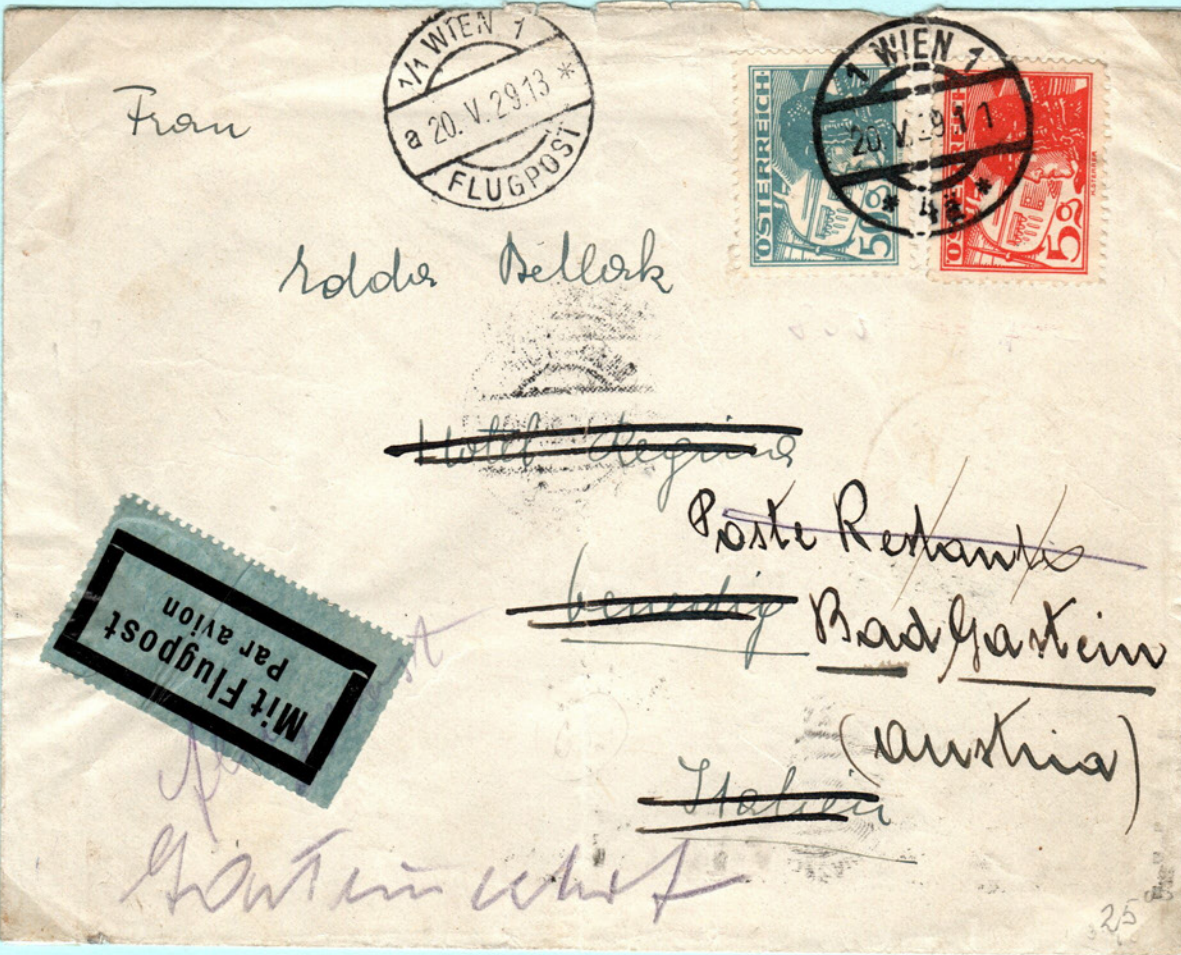 1/1 WIEN 1
a 20. V. 29. 13 *
FLUGPOST
1 WIEN 1
20. V. 29 11
* 4a *
ÖSTERREICH
50g
ÖSTERREICH
5g
Frau
Edda Bellak
Hotel Regina
Poste Restante
Venedig
Bad Gastein
(Austria)
Italien
Mit Flugpost
Par avion
25